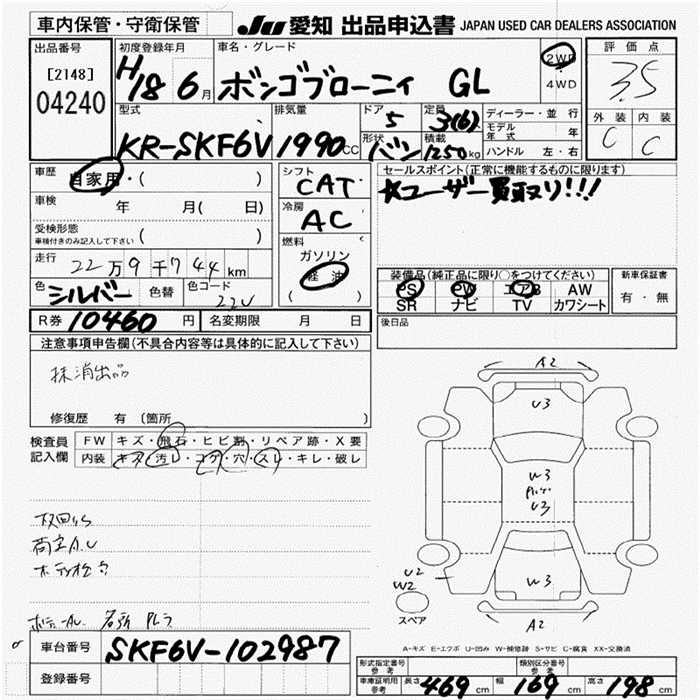 車内保管・守衛保管
JU 愛知 出品申込書 JAPAN USED CAR DEALERS ASSOCIATION
出品番号
[2148]
04240
初度登録年月
H18 6月
車名・グレード
ボンゴブローニィ GL
2WD
4WD
評価点
3.5
外装 内装
C C
型式
KR-SKF6V
排気量
1990cc
ドア
5
形状
バン
定員
3(6)
積載
1250kg
ディーラー・並行
モデル年式 年
ハンドル 左・右
車歴
自家用・( )
車検 年 月( 日)
受検形態
車検付きのみ記入して下さい ( )
走行 22万9千744km
色 シルバー 色替 色コード 22V
R券 10460円 名変期限 月 日
シフト
CAT
冷房
AC
燃料
ガソリン
軽油
( )
セールスポイント(正常に機能するものに限ります)
☆ユーザー買取り!!!
装備品(純正品に限り○をつけてください)
PS PW エアB AW
SR ナビ TV カワシート
新車保証書
有・無
後日品
注意事項申告欄(不具合内容等は具体的に記入して下さい)
抹消出品
修復歴 有 (箇所 )
検査員
記入欄
FW キズ・飛石・ヒビ割・リペア跡・X要
内装 キズ・汚レ・コゲ・穴・スレ・キレ・破レ
A2
U3
W3
U3
W3
U2
W2
A2
スペア
A-キズ E-エクボ U-凹み W-補修跡 S-サビ C-腐食 XX-交換済
車台番号 SKF6V-102987
登録番号
形式指定番号
参考
類別区分番号
参考
車庫証明用
参考
長さ 469cm 幅 169cm 高さ 198cm